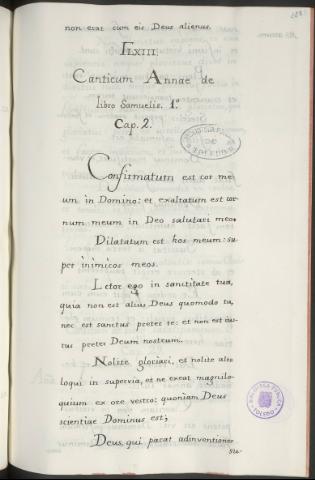 non erat cum eis Deus alienus.
FLXIII.
Canticum Annae de
libro Samuelis. 1.º
Cap. 2.
Confirmatum est cor me
um in Domino: et exaltatum est cor
num meum in Deo salutari meo.
Dilatatum est hos meum: su
per inimicos meos.
Letor ego in sanctitate tua,
quia non est alius Deus quomodo tu,
nec est sanctus preter te: et non est
preter Deum nostrum.
Nolite gloriari, et nolite alto
loqui in supervia, et ne exeat magnilo
quium ex ore vestro: quoniam Deus
scientiae Dominus est;
Deus, qui parat adinventiones